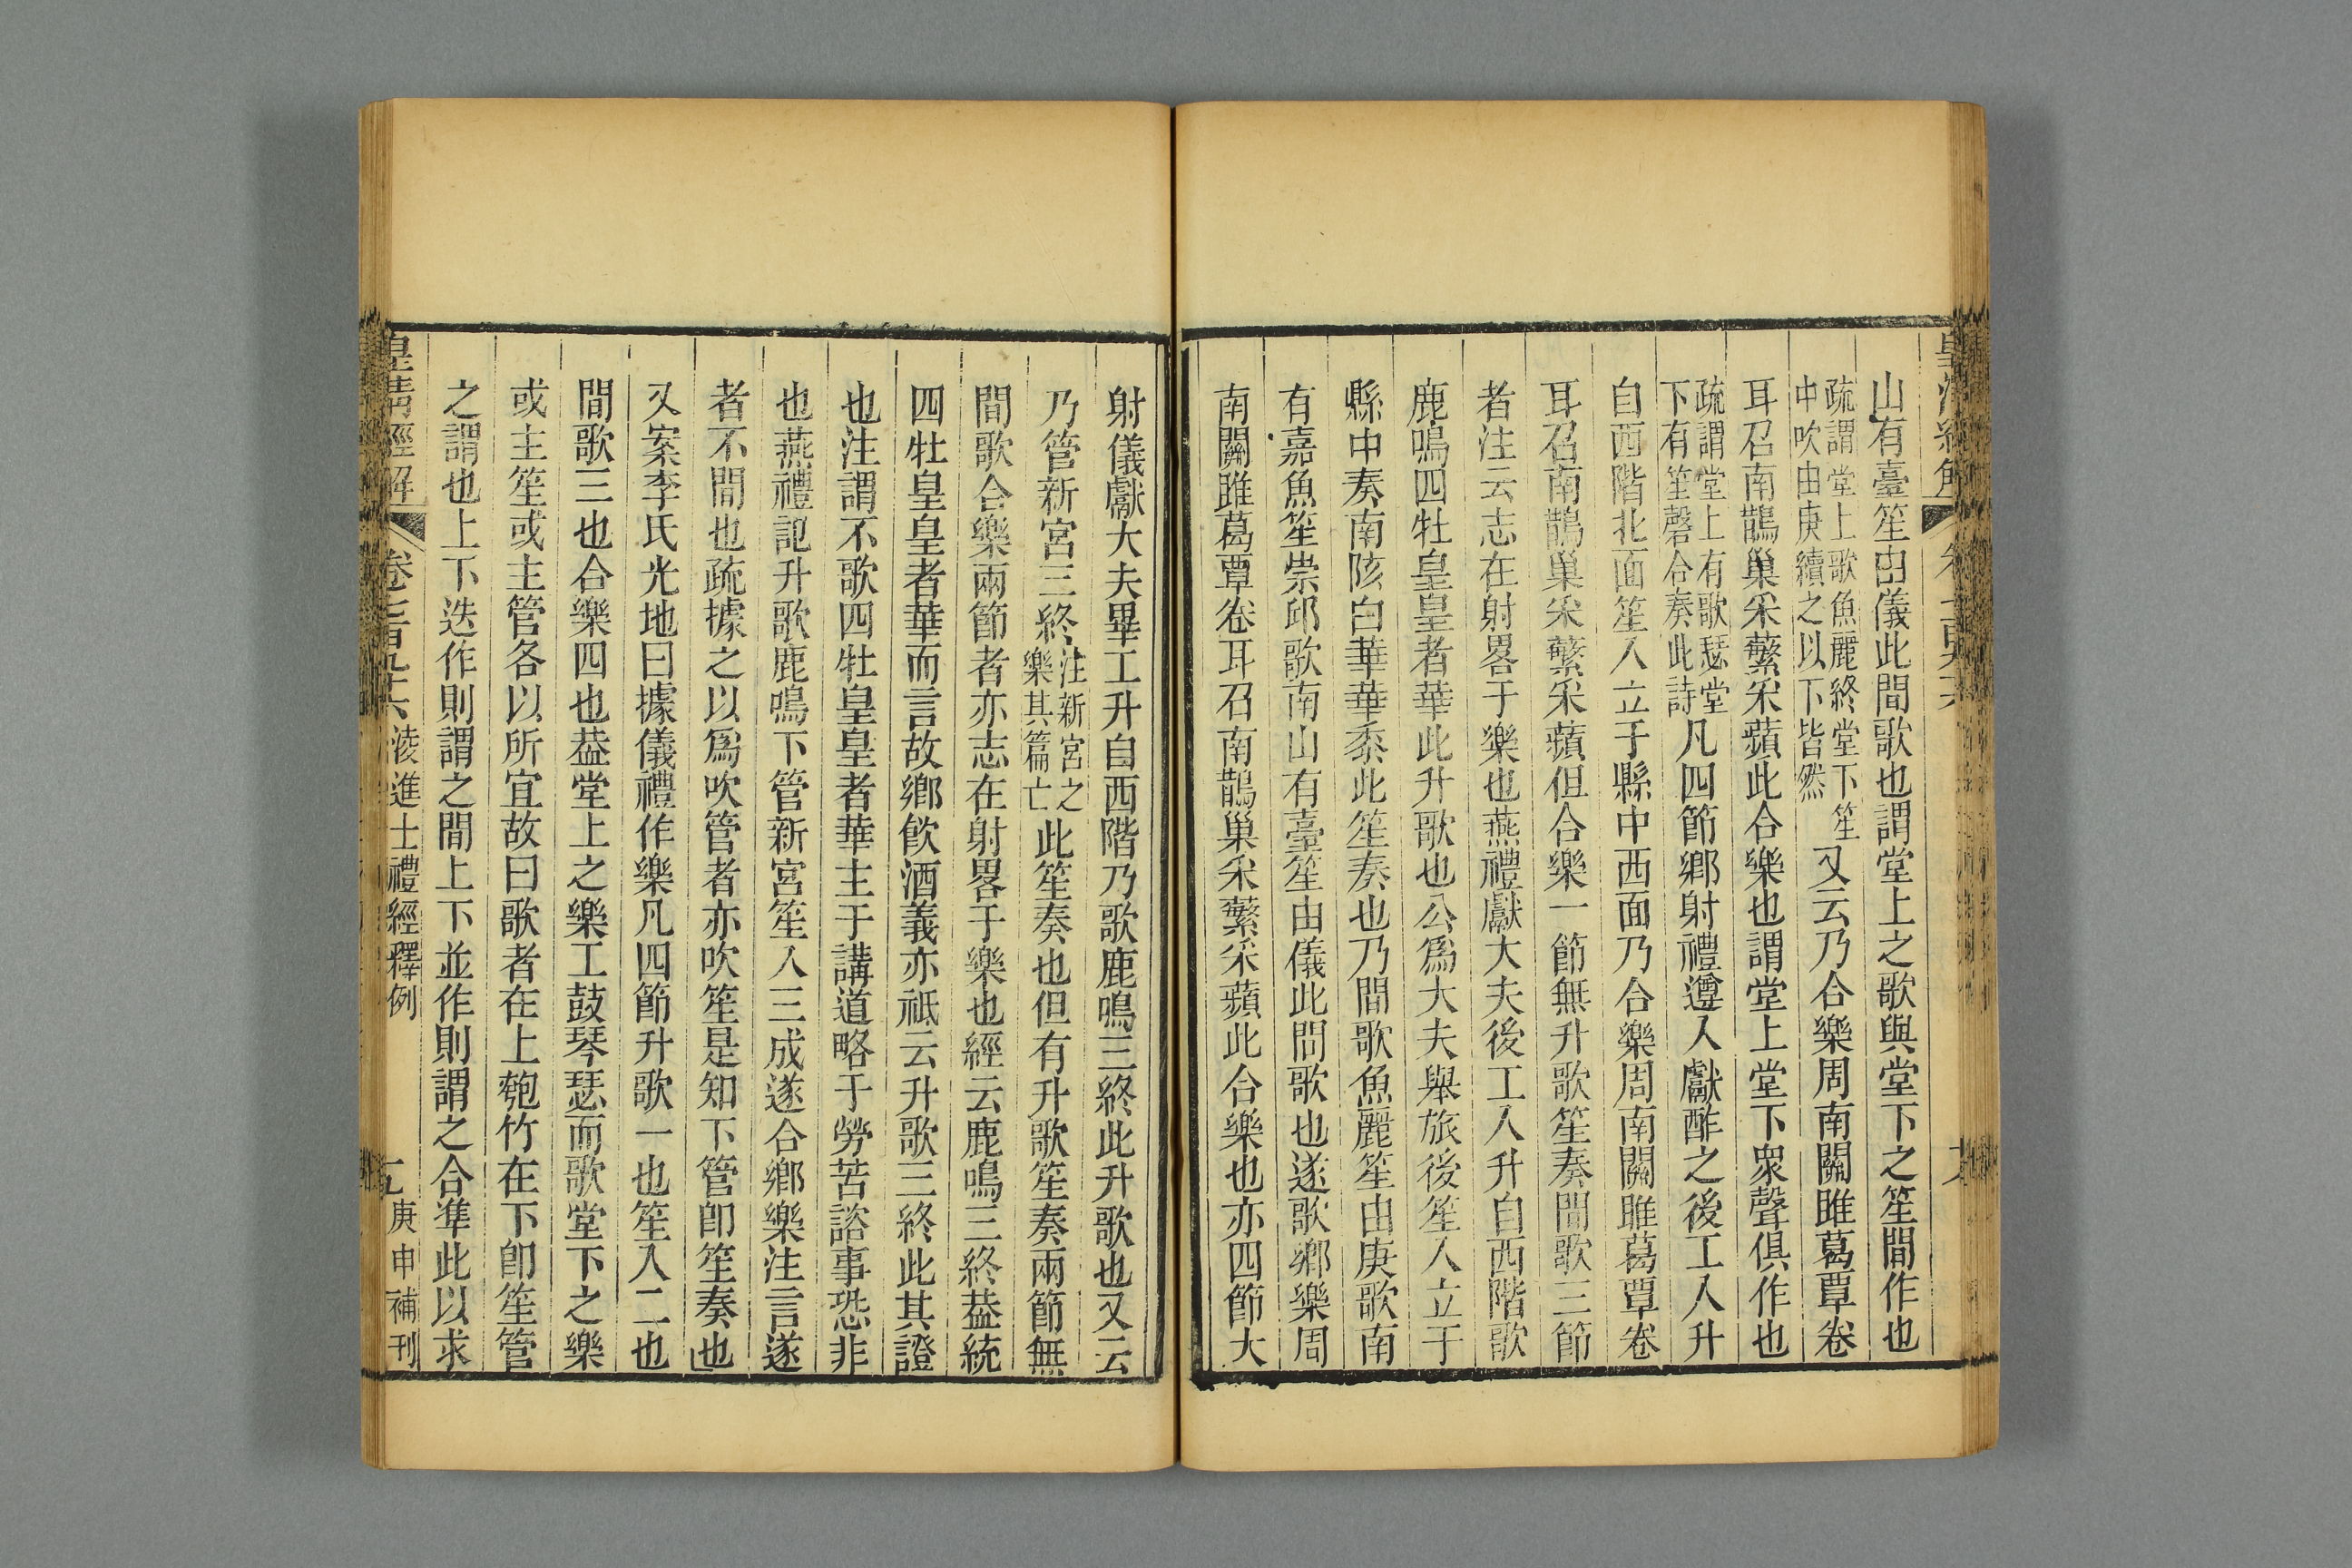 山有臺笙由儀此間歌也謂堂上之歌與堂下之笙間作也
疏謂堂上歌魚麗終堂下笙
中吹由庚續之以下皆然
又云乃合樂周南關雎葛覃卷
耳召南鵲巢采蘩采蘋此合樂也謂堂上堂下衆聲俱作也
疏謂堂上有歌瑟堂
下有笙磬合奏此詩
凡四節鄉射禮遵入獻酢之後工入升
自西階北面笙入立于縣中西面乃合樂周南關雎葛覃卷
耳召南鵲巢采蘩采蘋但合樂一節無升歌笙奏間歌三節
者注云志在射畧于樂也燕禮獻大夫後工入升自西階歌
鹿鳴四牡皇皇者華此升歌也公爲大夫舉旅後笙入立于
縣中奏南陔白華華黍此笙奏也乃間歌魚麗笙由庚歌南
有嘉魚笙崇邱歌南山有臺笙由儀此間歌也遂歌鄉樂周
南關雎葛覃卷耳召南鵲巢采蘩采蘋此合樂也亦四節大
射儀獻大夫畢工升自西階乃歌鹿鳴三終此升歌也又云
乃管新宮三終
注新宮之
樂其篇亡
此笙奏也但有升歌笙奏兩節無
間歌合樂兩節者亦志在射畧于樂也經云鹿鳴三終葢統
四牡皇皇者華而言故鄉飮酒義亦祗云升歌三終此其證
也注謂不歌四牡皇皇者華主于講道略于勞苦諮事恐非
也燕禮記升歌鹿鳴下管新宮笙入三成遂合鄉樂注言遂
者不間也疏據之以爲吹管者亦吹笙是知下管卽笙奏也
又案李氏光地曰據儀禮作樂凡四節升歌一也笙入二也
間歌三也合樂四也葢堂上之樂工鼓琴瑟而歌堂下之樂
或主笙或主管各以所宜故曰歌者在上匏竹在下卽笙管
之謂也上下迭作則謂之間上下並作則謂之合準此以求
皇清經解
卷七百九十六
淩進士禮經釋例
庚申補刊